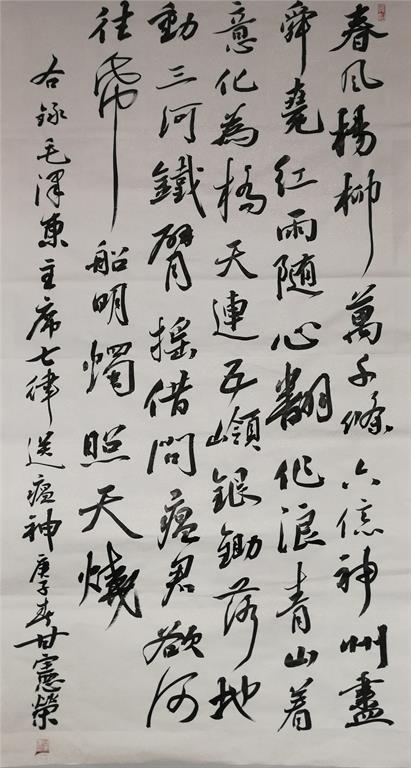 春风楊柳萬千條六億神州盡
舜堯紅雨随心翻作浪青山着
意化為橋天連五嶺銀鋤落地
動三河鐵臂摇借問瘟君欲何
往帋船明燭照天燒
右録毛澤東主席七律送瘟神庚子春甘憲榮